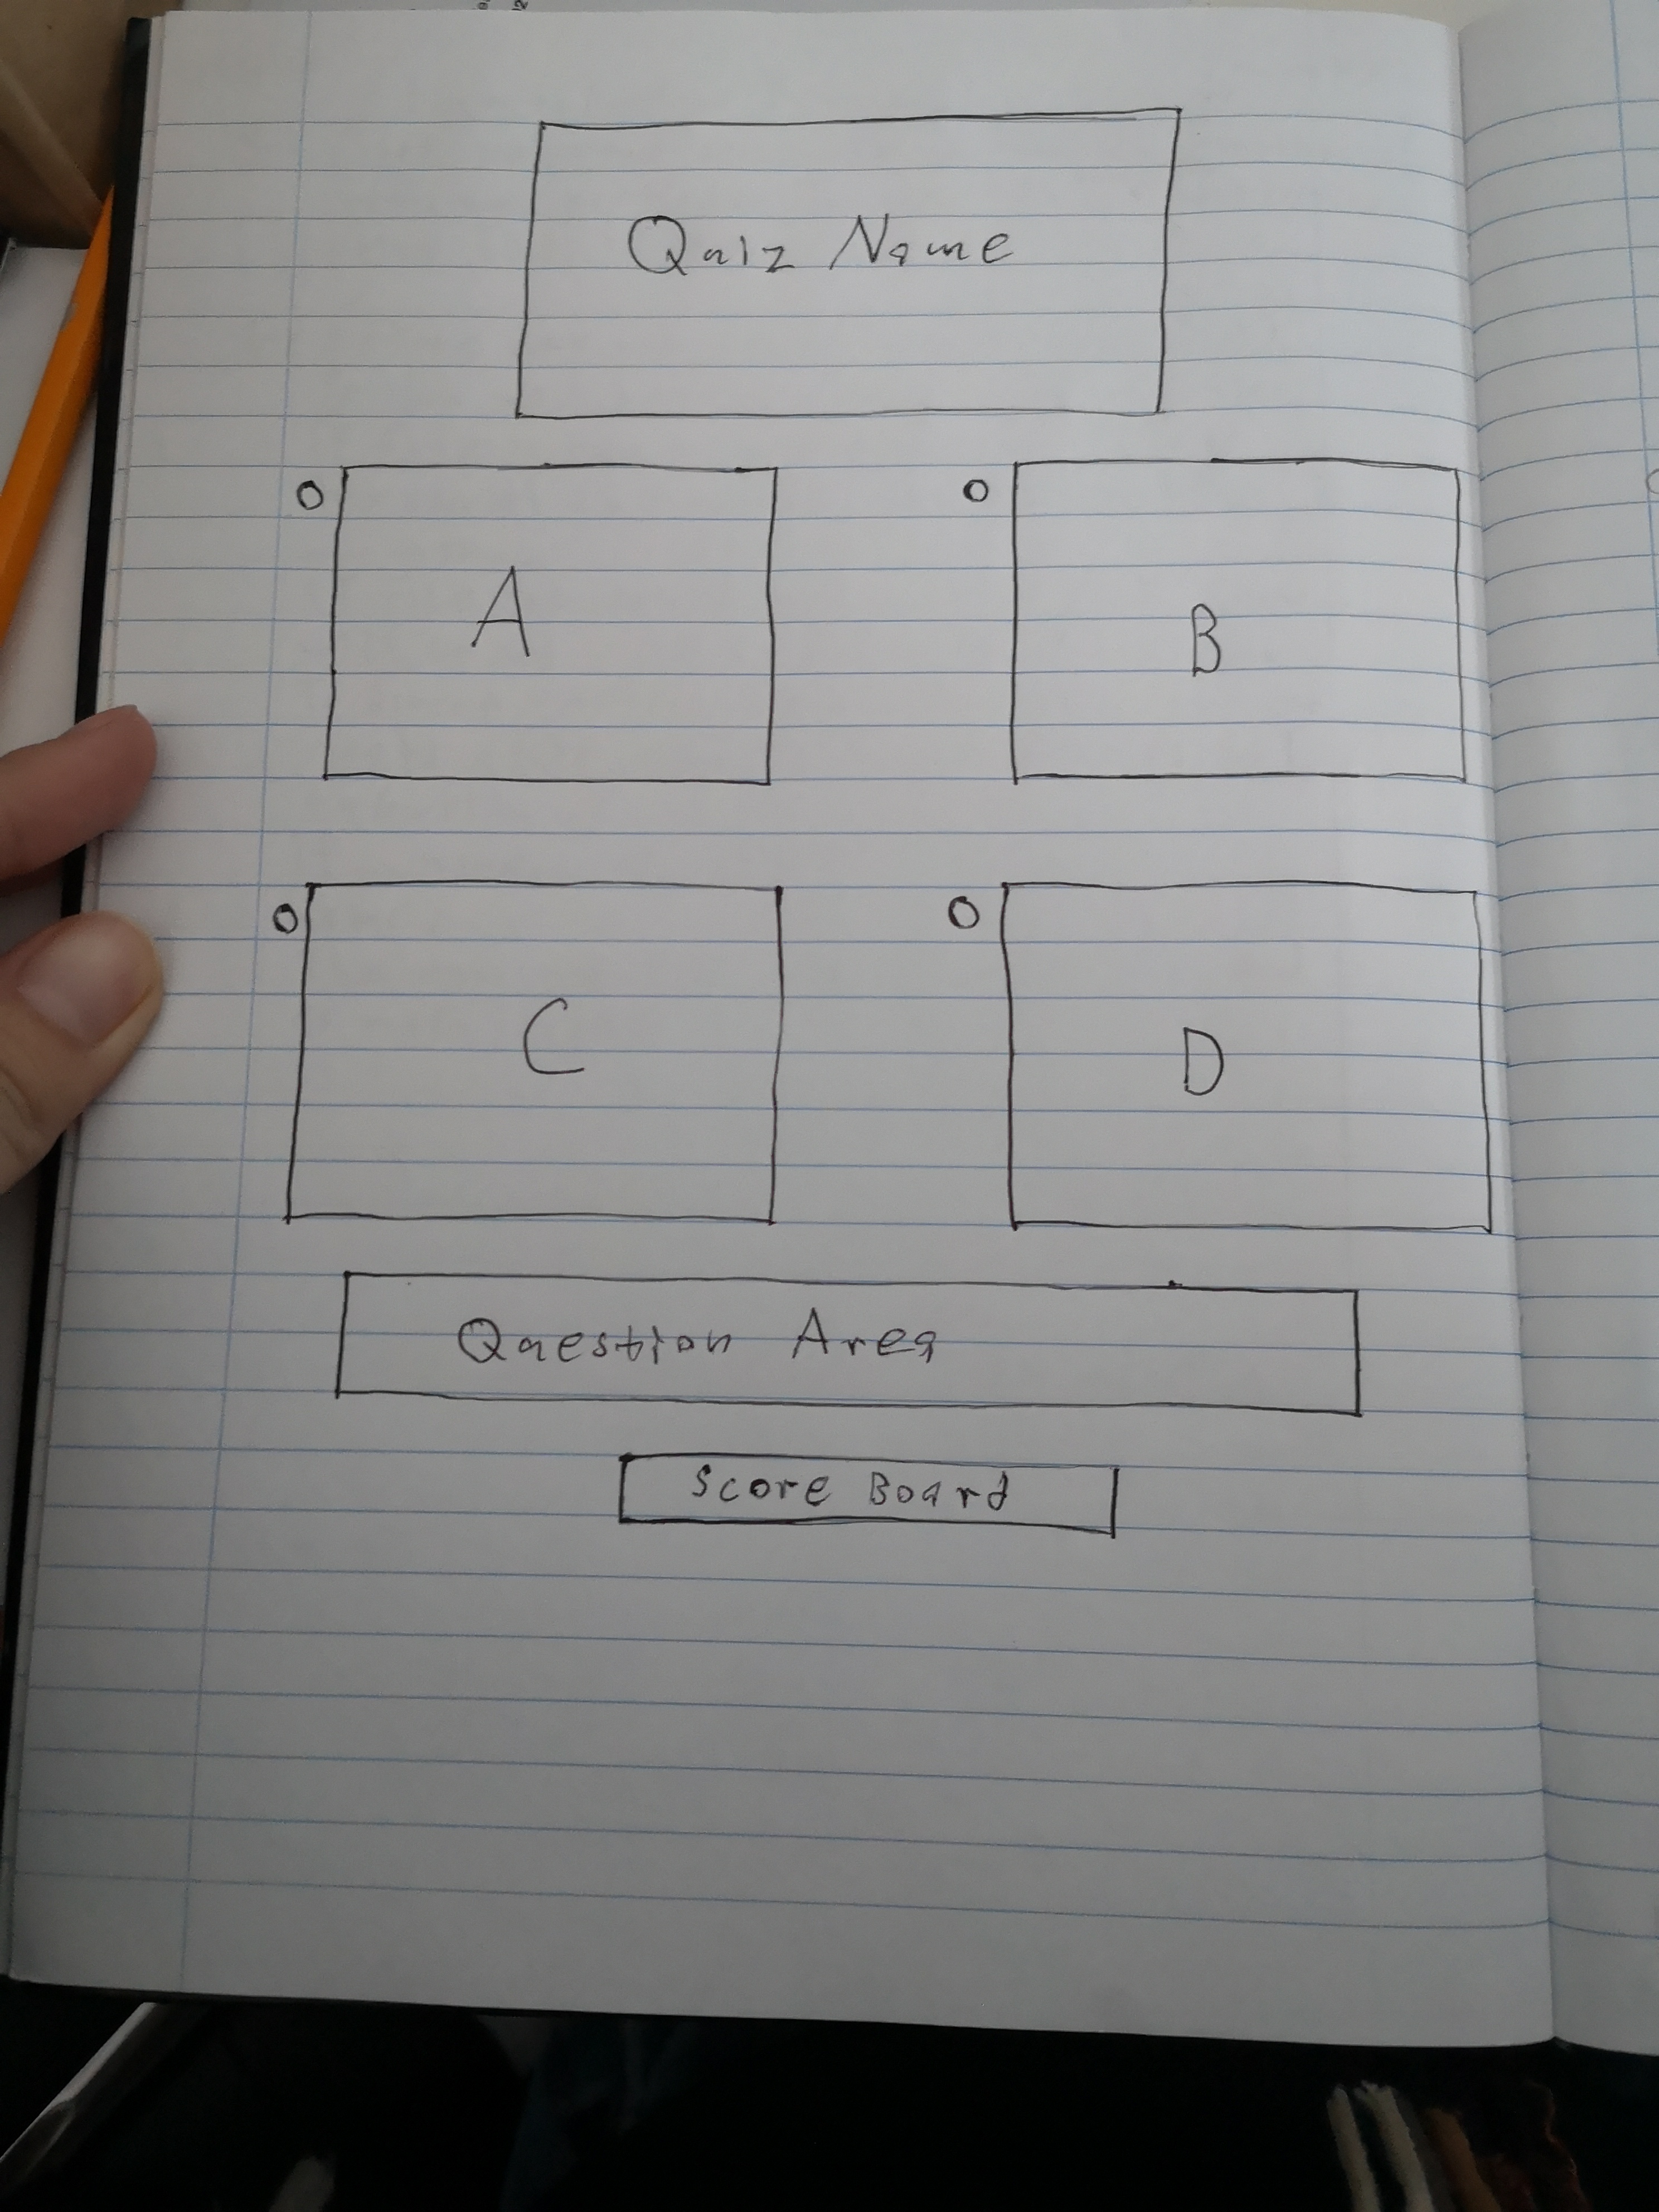 Quiz Name
A
B
C
D
Question Area
Score Board